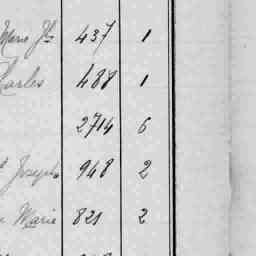 Marie Jh 437 1
Charles 488 1
2714 6
Joseph 948 2
Marie 821 2